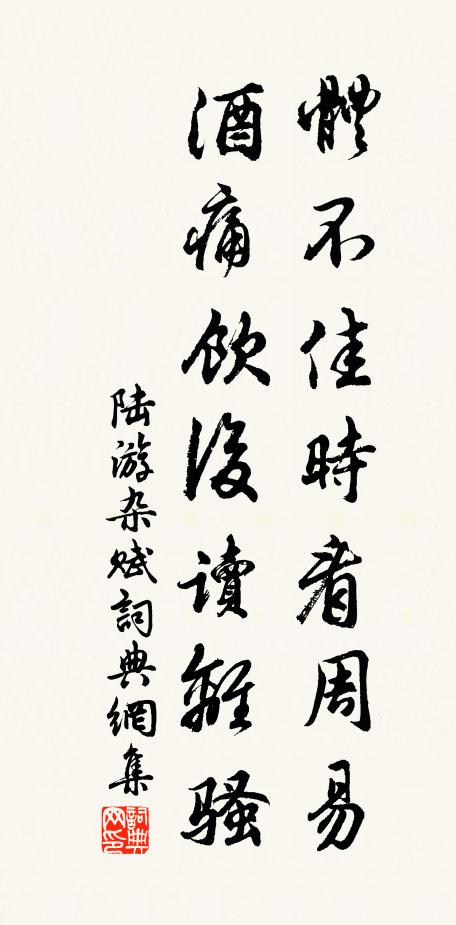 體不佳時看周易
酒痛飲後读離骚
陆游杂赋詞典網集
詞典网印